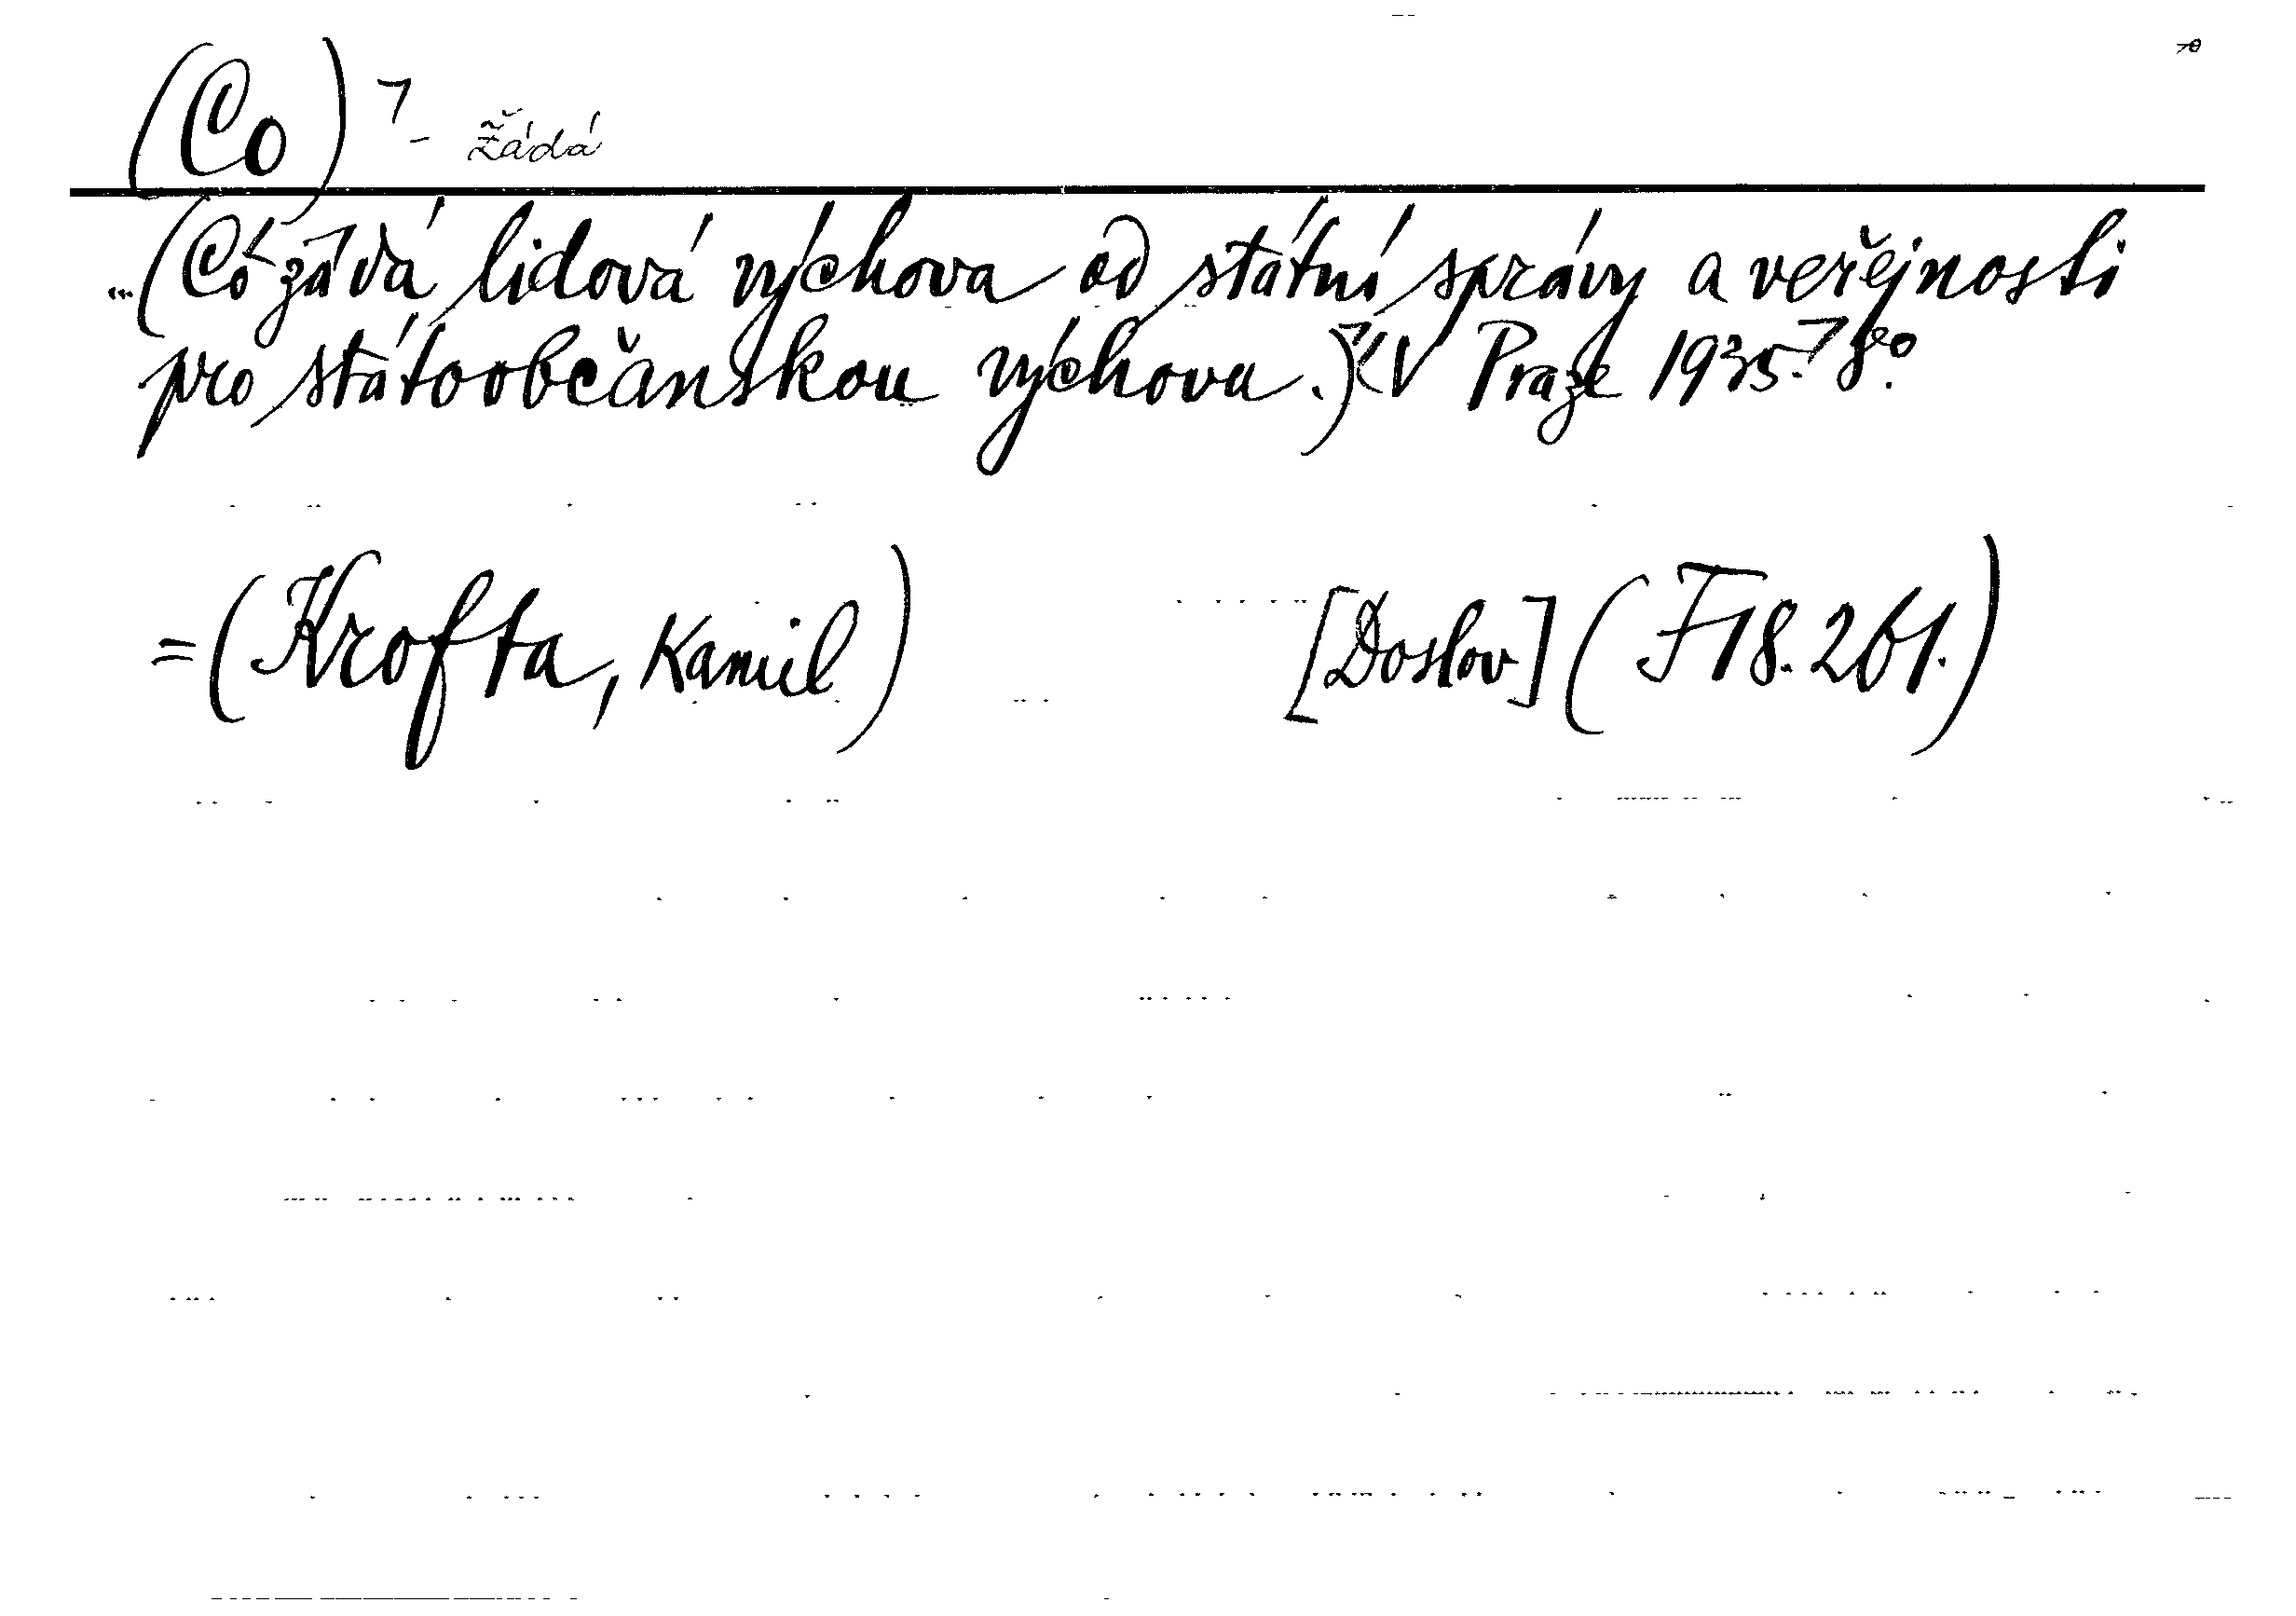 (Co) ⁊ - Žádá
(Co žádá lidová výchova od státní správy a veřejnosti
pro státoobčanskou výchovu.) (V Praze 1935. 8°.
=(Krofta, Kamil) [Doslov] (F 18.261.)